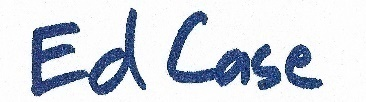 Ed Case